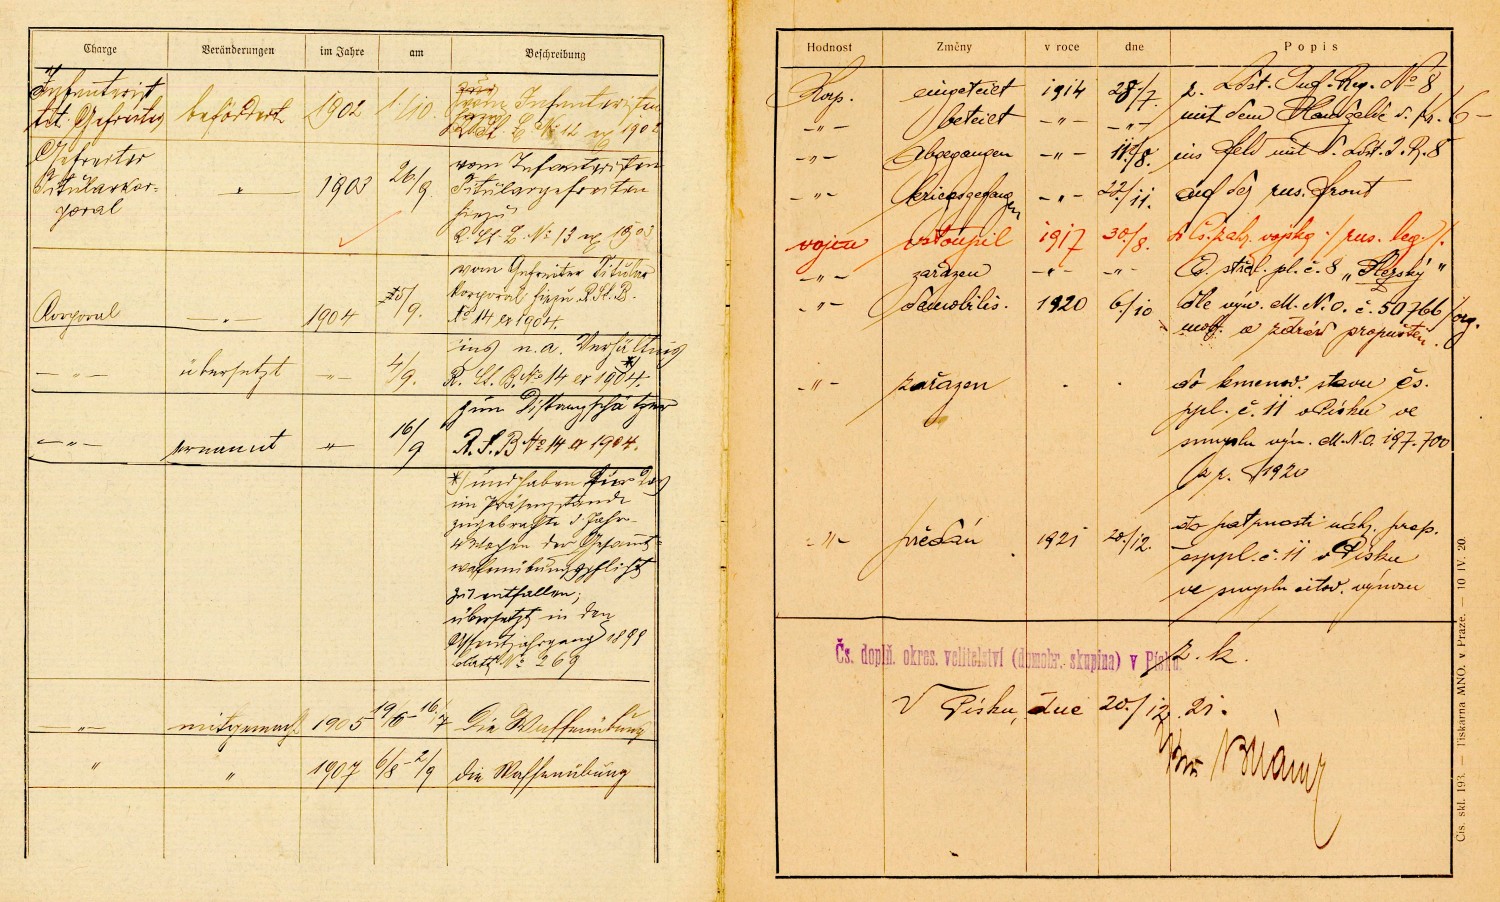 Charge Veränderungen im Jahre am Beschreibung
Infanterist
tit. Gefreiter befördert 1902 1./10. vom Infanteristen
No 12 ex 1902
Gefreiter
Titularkor-
poral " 1903 26/9. vom Infanteristen
Titulargefreiten
hiezu
R. St. B. No 13 ex 1903
Korporal -"- 1904 /9. vom Gefreiter Titular
Korporal hiezu R. St. B.
No 14 ex 1904.
-"- übersetzt -"- 4/9. ins n. a. Verhältnis *)
R. St. B. No 14 ex 1904.
-"- ernannt -"- 16/9 zum Distanzschätzer
R. S. B No 14 ex 1904.
*) und haben für das
im Präsenzstande
zugebrachte 3. Jahr
4 Wochen der Gesammt-
waffenübungspflicht
zu entfallen;
übersetzt in den
Assentjahrgang 1899
No 269
-"- mitgemacht 1905 19/6 - 16/7 die Waffenübung
" " 1907 6/8 - 2/9 die Waffenübung
Hodnost Změny v roce dne Popis
Korp. eingeteilt 1914 28./7. z. Ldst. Inf. Reg. No 8
-"- beteilt -"- -"- mit dem Handgelde v. Kr. 6 -
-"- Abgegangen -"- 11./8. ins Feld mit d. Ldst. I. R. 8
-"- kriegsgefangen -"- 27./11. auf der rus. Front
vojín vstoupil 1917 30./8. do čs. zahr. vojska /: rus. leg. :/.
-"- zařazen -"- -"- střel. pl. č. 8 „Slezský"
-"- demobilis. 1920 6./10 dle výn. M. N. O. č. 50766/org.
mob. a zdráv propuštěn.
-"- zařazen . . do kmenov. stavu čs.
ppl. č. 11 v Písku ve
smyslu výn. M. N. O. 197.700
z r. 1920
-"- předán . 1921 20./12. do patřnosti náhr. prap.
čsppl. č. 11 v Písku
ve smyslu citov. výnosu
Čs. doplň. okres. velitelství (domobr. skupina) v Písku.
z. k.
V Písku, dne 20./12. 21.
Čís. skl. 193. — Tiskárna MNO. v Praze. — 10 IV. 20.